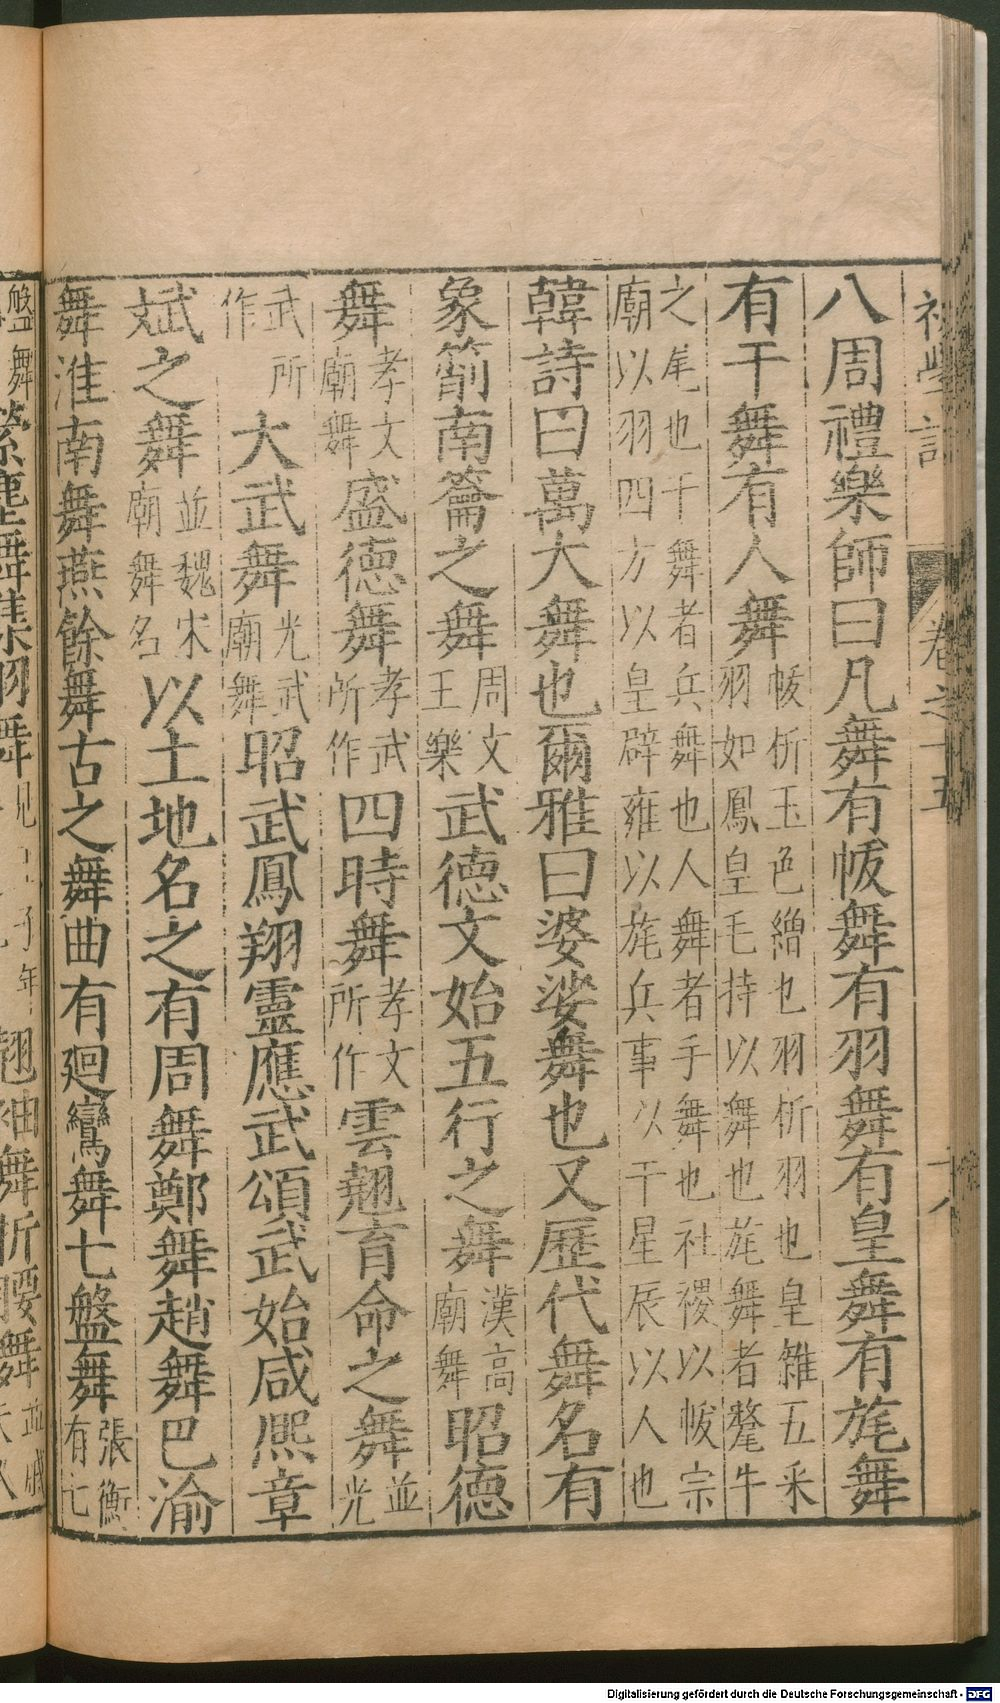 初學記 卷之十五 十八
八周禮樂師曰凡舞有帗舞有羽舞有皇舞有旄舞
有干舞有人舞帗析玉色繒也羽析羽也皇雜五采羽如鳳皇毛持以舞也旄舞者氂牛
之尾也干舞者兵舞也人舞者手舞也社稷以帗宗廟以羽四方以皇辟雍以旄兵事以干星辰以人也
韓詩曰萬大舞也爾雅曰婆娑舞也又歷代舞名有
象箾南籥之舞周文王樂武德文始五行之舞漢高廟舞昭德
舞孝文廟舞盛德舞孝武所作四時舞孝文所作雲翹育命之舞並光
武所作大武舞光武廟舞昭武鳳翔靈應武頌武始咸熙章
斌之舞並魏宋廟舞名以土地名之有周舞鄭舞趙舞巴渝
舞淮南舞燕餘舞古之舞曲有廻鸞舞七盤舞張衡有七
盤舞縈塵舞集羽舞見王子年翹袖舞折腰舞並戚
Digitalisierung gefördert durch die Deutsche Forschungsgemeinschaft - DFG